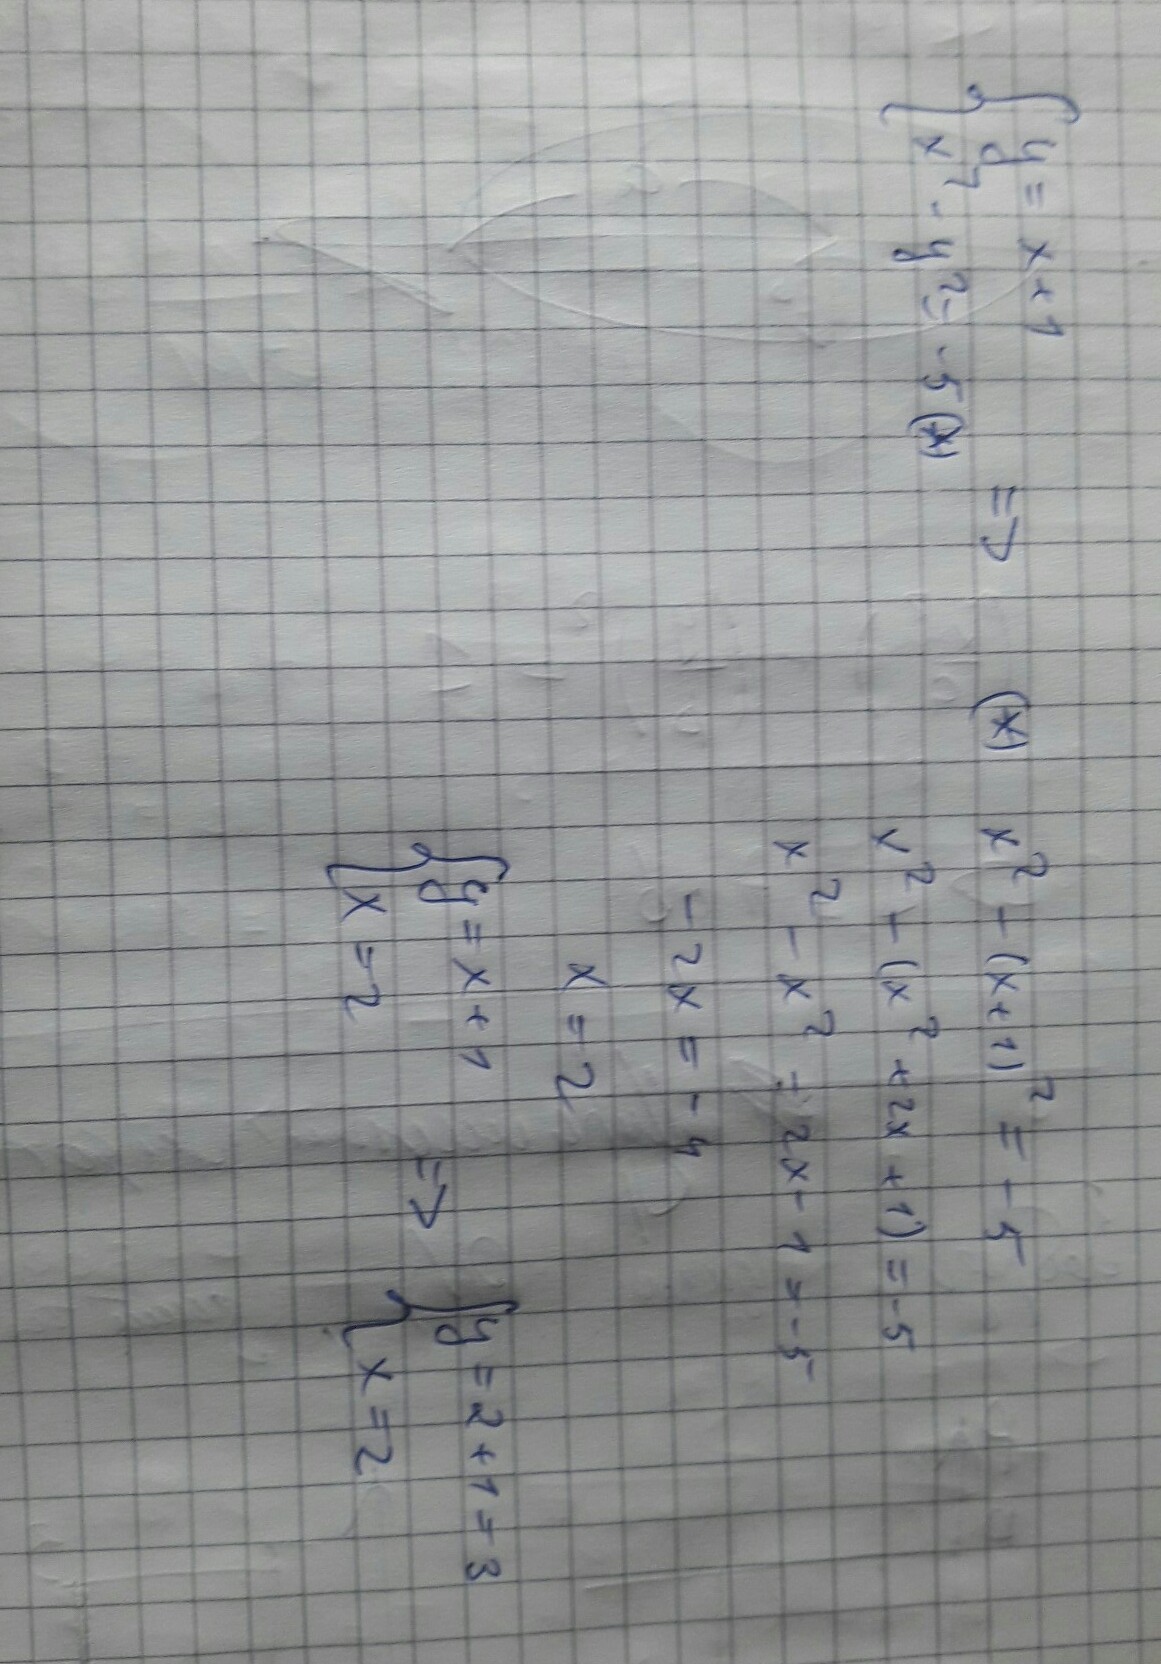 { y = x + 1
{ x² - y² = -5 (*) =>
(*) x² - (x+1)² = -5
x² - (x² + 2x + 1) = -5
x² - x² - 2x - 1 = -5
-2x = -4
x = 2
{ y = x + 1
{ x = 2 =>
{ y = 2 + 1 = 3
{ x = 2